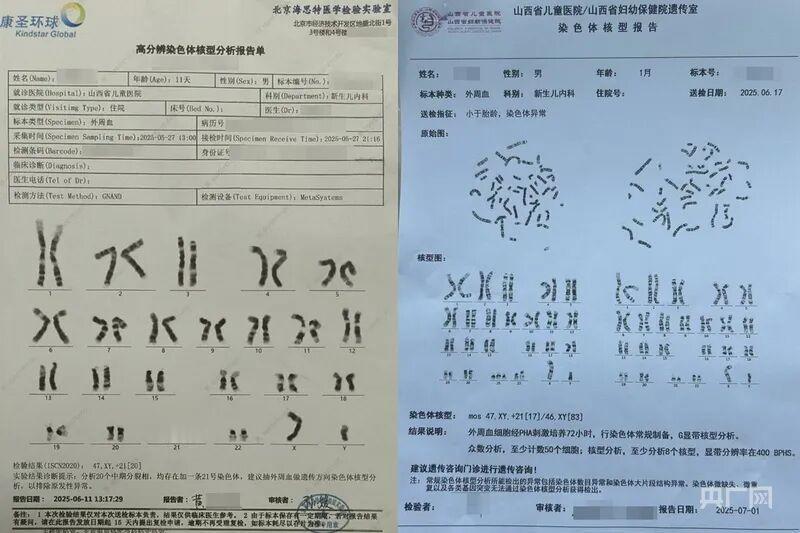 康圣环球
Kindstar Global
北京海思特医学检验实验室
北京市经济技术开发区地盛北街1号
3号楼和4号楼
高分辨染色体核型分析报告单
姓名(Name):
年龄(Age): 11天
性别(Sex): 男
标本编号(No.):
就诊医院(Hospital): 山西省儿童医院
科别(Department): 新生儿内科
就诊类型(Visiting Type): 住院
床号(Bed No.):
医生(Dr):
标本类型(Specimen): 外周血
病历号
采集时间(Specimen Sampling Time): 2025-05-27 13:00
接检时间(Specimen Receive Time): 2025-05-27 21:16
检测条码(Barcode):
身份证号
临床诊断(Diagnosis):
医生电话(Tel of Dr):
检测方法(Test Method): GNAND
检测设备(Test Equipment): MetaSystems
1 2 3 4 5
6 7 8 9 10 11 12
13 14 15 16 17 18
19 20 21 22 X Y
检验结果(ISCN2020): 47,XY,+21[20]
实验结果诊断提示: 分析20个中期分裂相, 均存在加一条21号染色体, 建议抽外周血做遗传方向染色体核型分析, 以排除原发性异常。
报告日期: 2025-06-11 13:17:29
报告者: 黄
审核者:
备注: 1 本次检验结果仅对本次送检标本负责, 结果仅供临床医生参考。2 由于标本保存有一定期限, 若对报告结果
有疑问, 请在此报告发放日期起 15 天内提出复检申请, 逾期不再受理复检, 如标本耗尽以存计为准。
山西省儿童医院/山西省妇幼保健院遗传室
染色体核型报告
姓名:
性别: 男
年龄: 1月
标本号:
标本种类: 外周血
科别: 新生儿内科
住院号:
送检日期: 2025.06.17
送检指征: 小于胎龄, 染色体异常
原始图:
核型图:
染色体核型: mos 47,XY,+21[17]/46,XY[83]
结果说明: 外周血细胞经PHA刺激培养72小时, 行染色体常规制备, G显带核型分析。
众数分析, 至少计数50个细胞; 核型分析, 至少分析8个核型, 显带分辨率在400 BPHS。
建议遗传咨询门诊进行遗传咨询!
注: 常规染色体核型分析所能检出的异常包括染色体数目异常和染色体大片段结构异常, 染色体微缺失、微重
复以及各类基因突变无法通过染色体核型分析获得检出。
检验者:
审核者:
报告日期: 2025-07-01
央广网